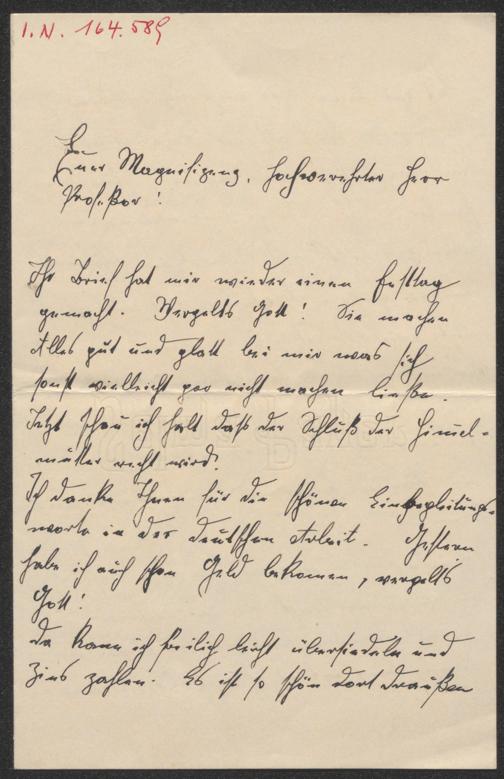 I.N. 164.589
Euer Magnifizenz, hochverehrter Herr
Professor!
Ihr Brief hat mir wieder einen Festtag
gemacht. Vergelts Gott! Sie machen
Alles gut und glatt bei mir was sich
sonst vielleicht gar nicht machen ließe.
Jetzt schau ich halt daß der Schluß der Himel-
mutter recht wird.
Ich danke Ihnen für die schönen Einbegleitungs-
worte in der deutschen Arbeit. Gestern
habe ich auch schon Geld bekomen, vergelts
Gott!
Da kann ich freilich leicht übersiedeln und
Zins zahlen. Es ist so schön dort draußen